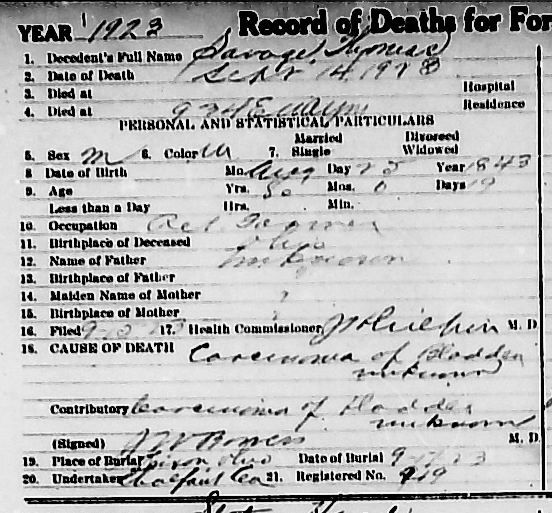 YEAR 1923 Record of Deaths for For
1. Decedent's Full Name Savage Thomas
2. Date of Death Sept 14, 1923
3. Died at Hospital
4. Died at 934 E Wayne Residence
PERSONAL AND STATISTICAL PARTICULARS
Married Divorced
5. Sex M 6. Color W 7. Single Widowed
8 Date of Birth Mo. Aug Day 25 Year 1843
9. Age Yrs. 80 Mos. 0 Days 19
Less than a Day Hrs. Min.
10. Occupation Ret Farmer
11. Birthplace of Deceased Ohio
12. Name of Father unknown
13. Birthplace of Father
14. Maiden Name of Mother ?
15. Birthplace of Mother
16. Filed 17. Health Commissioner M. D.
18. CAUSE OF DEATH Carcinoma of Bladder
unknown
Contributory Carcinoma of Bladder
unknown
(Signed) M. D.
19. Place of Burial Ohio Date of Burial
20. Undertaker 21. Registered No. 919